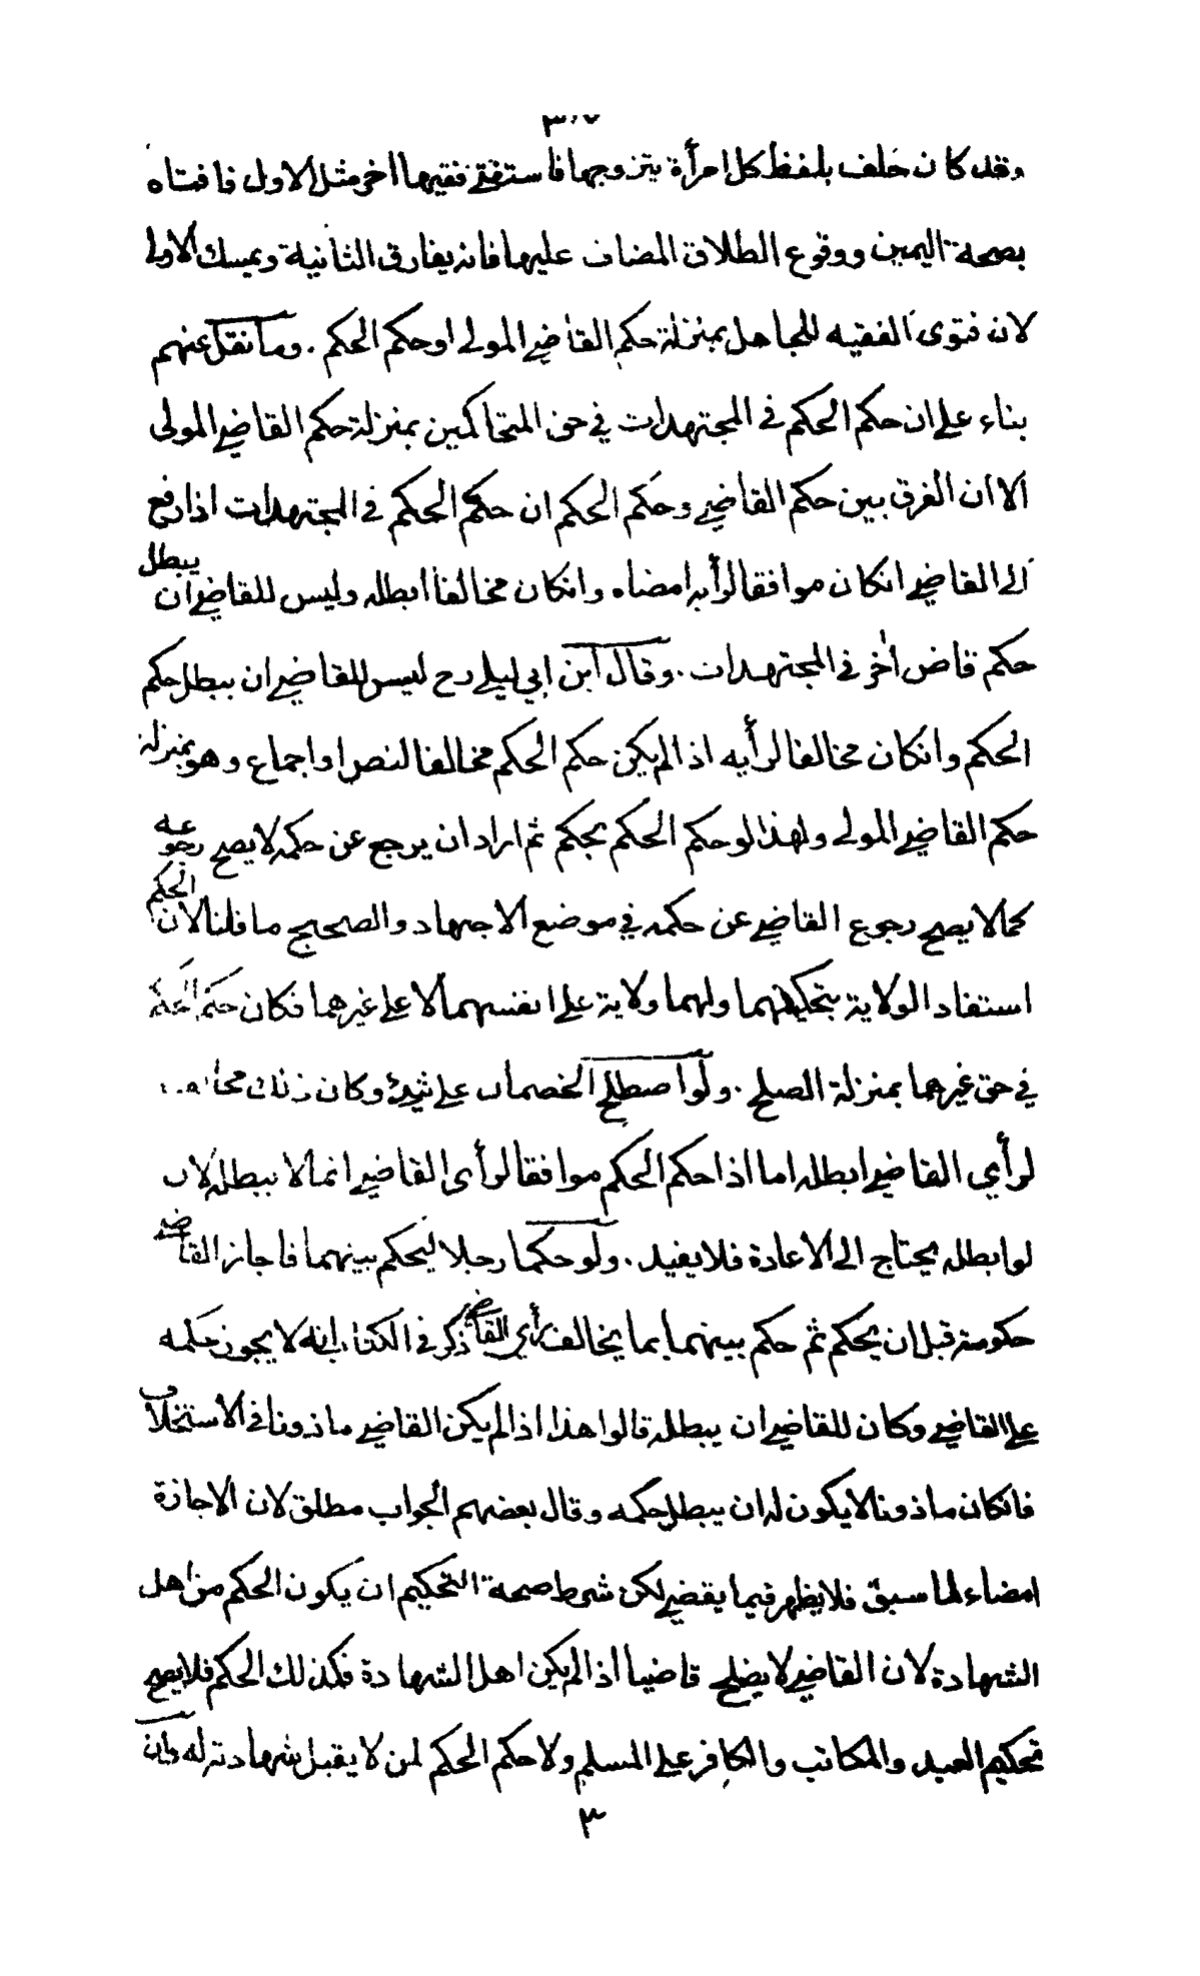 ٣٠٧
وقد كان حلف بلفظ كل امرأة يتزوجها فاستفتى فقيها اخر مثل الاول فافتاه
بصحة اليمين ووقوع الطلاق المضاف عليها فانه يفارق الثانية ويمسك الاولى
لان فتوى الفقيه للجاهل بمنزلة حكم القاضي المولى او حكم الحكم . وما نقل عنهم
بناء على ان حكم الحكم في المجتهدات في حق المتحاكمين بمنزلة حكم القاضي المولى
الا ان الفرق بين حكم القاضي وحكم الحكم ان حكم الحكم في المجتهدات اذا رفع
الى القاضي انكان موافقا لرأيه امضاه وانكان مخالفا ابطله وليس للقاضي ان يبطل
حكم قاض اخر في المجتهدات . وقال ابن ابي ليلى رح ليس للقاضي ان يبطل حكم
الحكم وانكان مخالفا لرأيه اذا لم يكن حكم الحكم مخالفا لنص او اجماع وهو بمنزلة
حكم القاضي المولى ولهذا لو حكم الحكم بحكم ثم اراد ان يرجع عن حكمه لا يصح رجوعه
كما لا يصح رجوع القاضي عن حكمه في موضع الاجتهاد والصحيح ما قلنا لان الحكم
استفاد الولاية بتحكيمهما ولهما ولاية على انفسهما لا على غيرهما فكان حكم الحكم
في حق غيرهما بمنزلة الصلح . ولو اصطلح الخصمان على شيئ وكان ذلك مخالفا
لرأي القاضي ابطله اما اذا حكم الحكم موافقا لرأى القاضي انما لا يبطله لان
لو ابطله يحتاج الى الاعادة فلا يفيد . ولو حكما رجلا ليحكم بينهما فاجاز القاضي
حكومته قبل ان يحكم ثم حكم بينهما بما يخالف رأي القاضي ذكر في الكتاب انه لا يجوز حكمه
على القاضي وكان للقاضي ان يبطله قالوا هذا اذا لم يكن القاضي ماذونا في الاستخلاف
فانكان ماذونا لا يكون له ان يبطل حكمه وقال بعضهم الجواب مطلق لان الاجازة
امضاء لما سبق فلا يظهر فيما يقضي لكن شرط صحة التحكيم ان يكون الحكم من اهل
الشهادة لان القاضي لا يصلح قاضيا اذا لم يكن اهل الشهادة فكذلك الحكم فلا يصح
تحكيم العبد والمكاتب والكافر على المسلم ولا حكم الحكم لمن لا يقبل شهادته له وان
٣